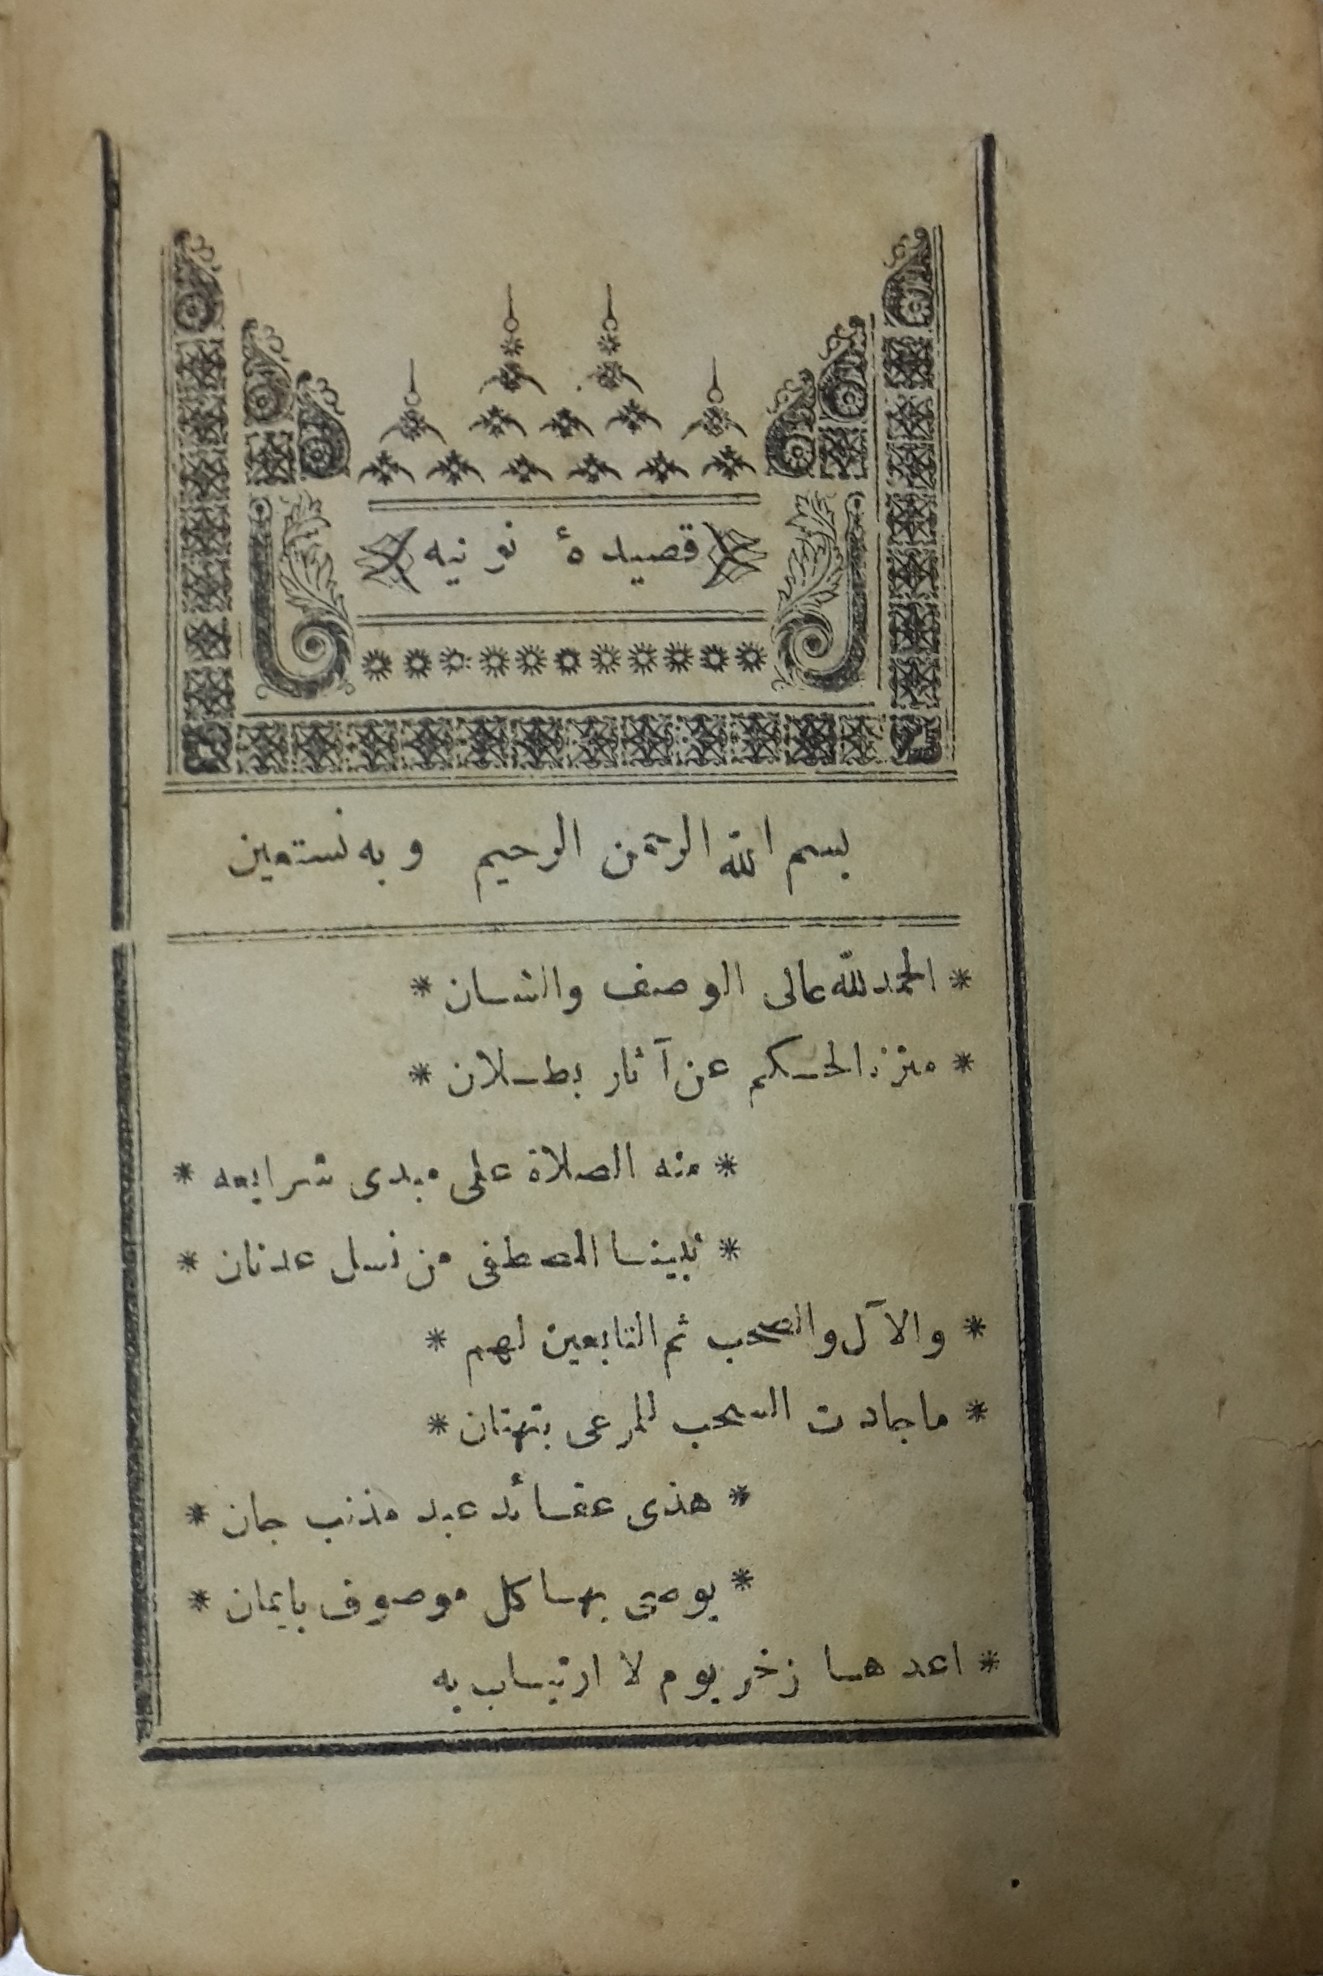 قصيدهٔ نونيه
بسم الله الرحمن الرحيم وبه نستعين
* الحمد لله عالى الوصف والشان *
* منزه الحكم عن آثار بطلان *
* منه الصلاة على مبدى شرايعه *
* نبينا المصطفى من نسل عدنان *
* والآل والصحب ثم التابعين لهم *
* ماجادت السحب للمرعى بتهتان *
* هذى عقائد عبد مذنب جان *
* يوصى بها كل موصوف بايمان *
* اعدها زخر يوم لا ارتياب به